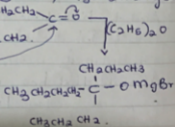 CH₂CH₂
C=O
CH₂.
(C₂H₅)₂O
CH₂CH₂CH₃
CH₃CH₂CH₂CH₂-C-OMgBr
CH₃CH₂CH₂.